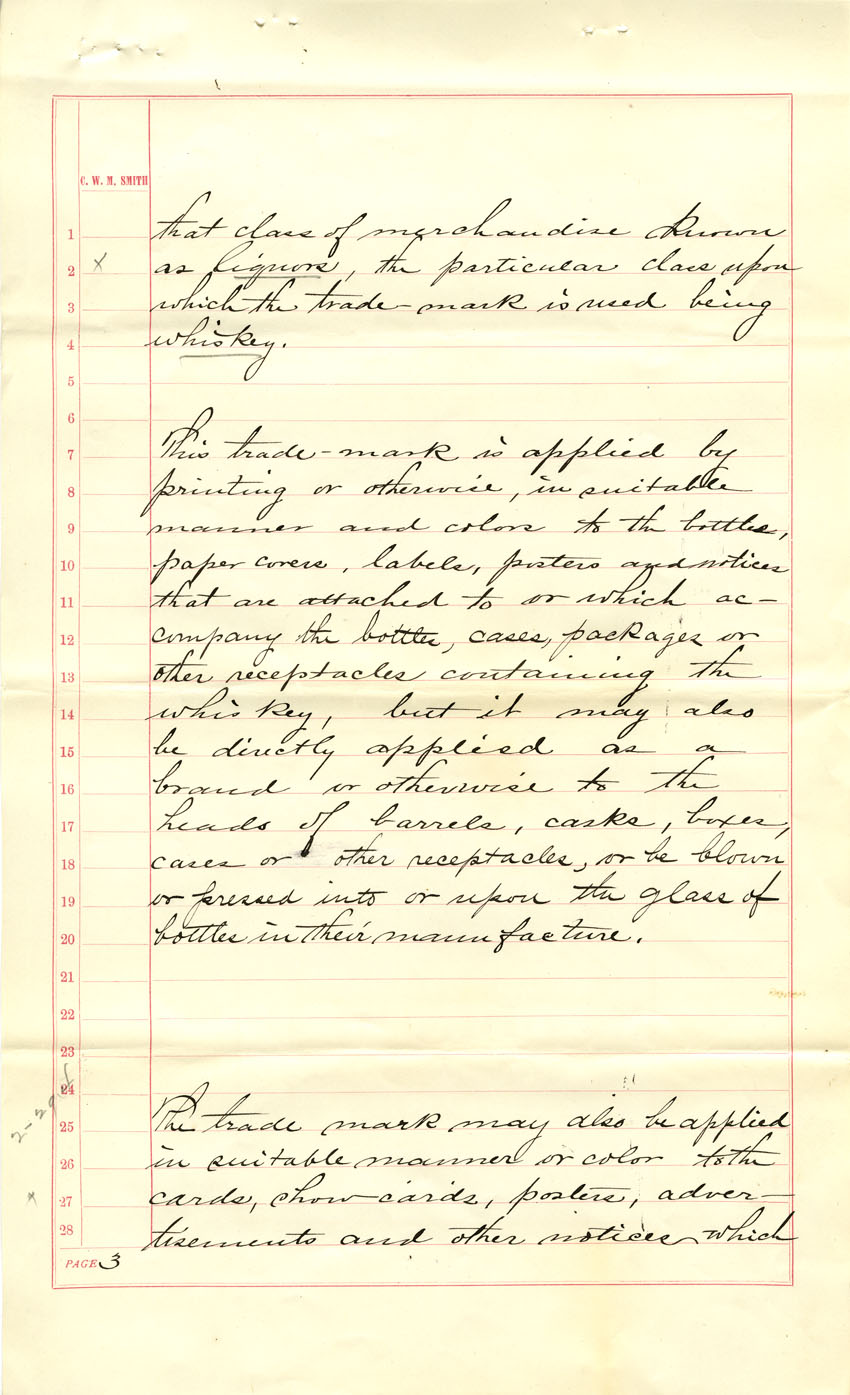 C. W. M. SMITH
1 that class of merchandise known
2 x as liquors, the particular class upon
3 which the trade-mark is used being
4 whiskey.
5
6
7 This trade-mark is applied by
8 printing or otherwise, in suitable
9 manner and colors to the bottles,
10 paper covers, labels, posters and notices
11 that are attached to or which ac-
12 company the bottles, cases, packages or
13 other receptacles containing the
14 whiskey, but it may also
15 be directly applied as a
16 brand or otherwise to the
17 heads of barrels, casks, boxes,
18 cases or other receptacles, or be blown
19 or pressed into or upon the glass of
20 bottles in their manufacture.
21
22
23
24
25 The trade mark may also be applied
26 in suitable manner or color to the
27 cards, show-cards, posters, adver-
28 tisements and other notices which
PAGE 3